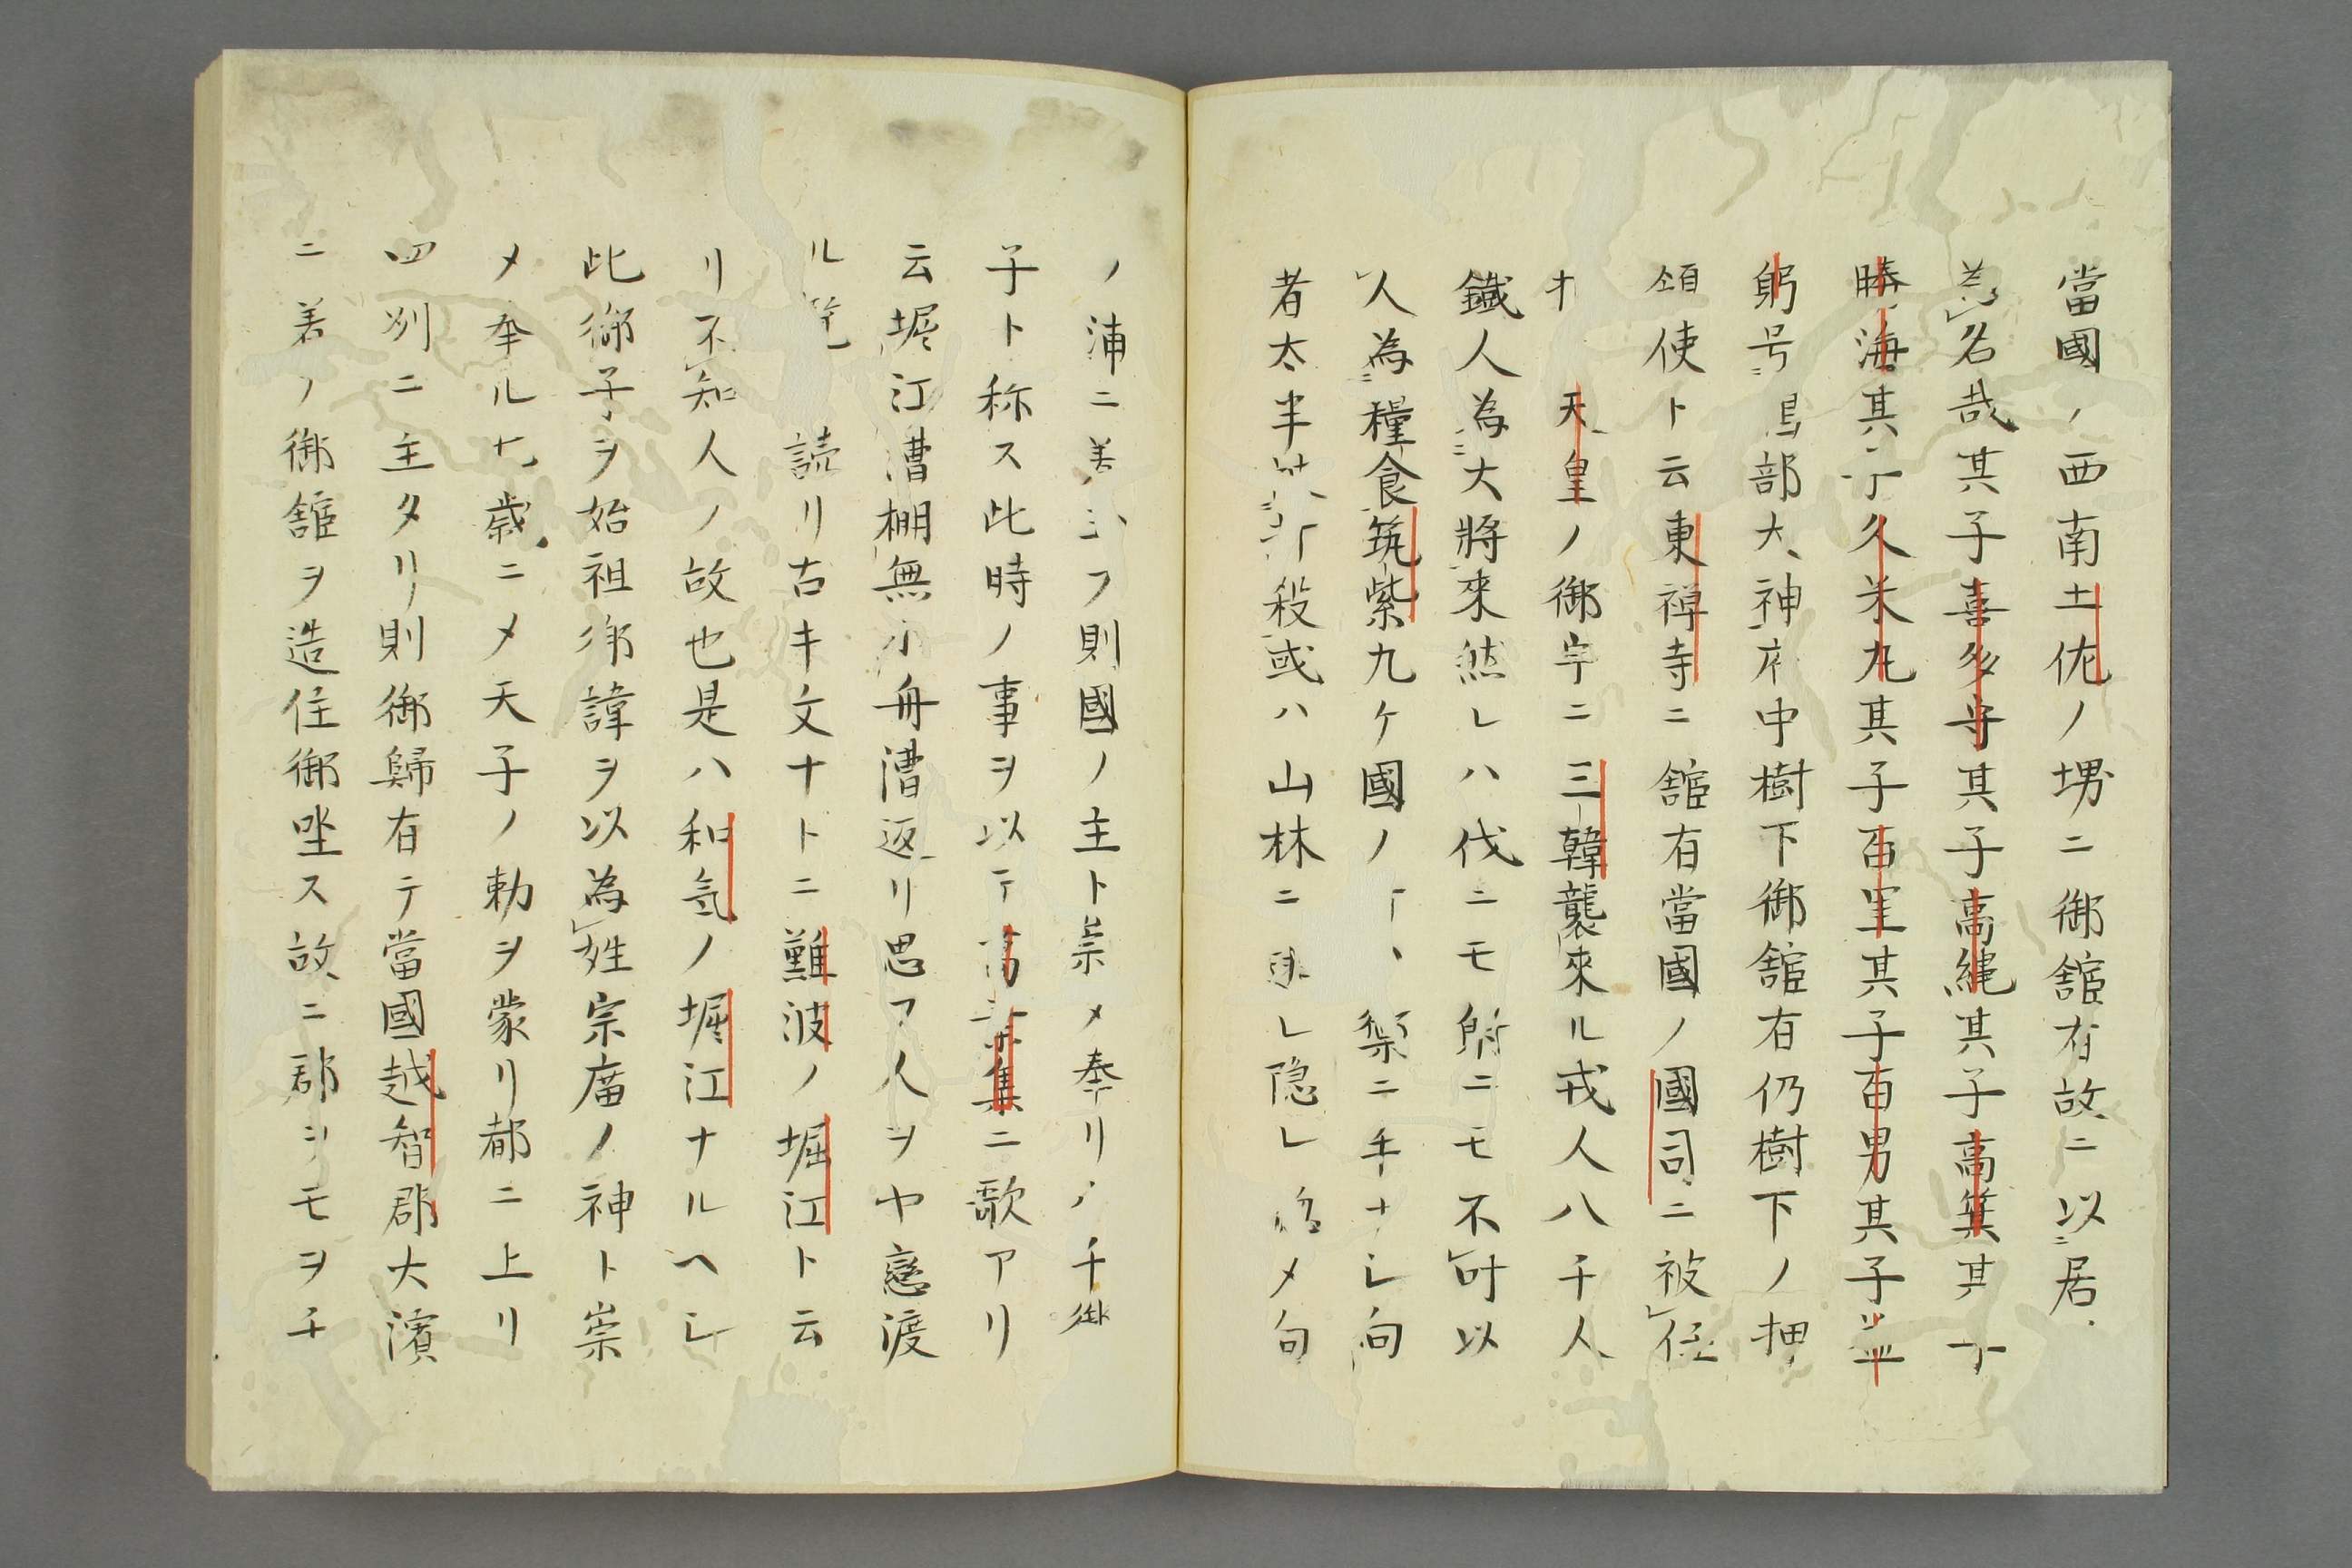 當國ノ西南土佐ノ堺ニ御舘有故ニ以居
為名哉其子喜多守其子高縄其子高箕其子
勝海其子久米丸其子百里其子百男其子益
躬号 部大神 中樹下御舘有仍樹下ノ押
領使ト云東禅寺ニ舘有當國ノ國司ニ被任
 天皇ノ御宇ニ三韓襲來ル戎人八千人
鐵人為大將來然レハ伐ニモ射ニモ不叶以
人為糧食筑紫九ケ國ノ 禦ニ手ナシ向
者太半 殺或ハ山林ニ逃レ隠レ メ向
ノ浦ニ着 フ則國ノ主ト崇メ奉リ 千御
子ト称ス此時ノ事ヲ以テ萬葉集ニ歌アリ
云堀江漕棚無小舟漕返リ思フ人ヲヤ戀渡
ル 読リ古キ文ナトニ難波ノ堀江ト云
リ不知人ノ故也是ハ和氣ノ堀江ナルヘシ
此御子ヲ始祖御諱ヲ以為姓宗廣ノ神ト崇
メ奉ル七歳ニメ天子ノ勅ヲ蒙リ都ニ上リ
四州ニ主タリ則御歸有テ當國越智郡大濱
ニ着ノ御舘ヲ造住御坐ス故ニ郡ヲモヲチ